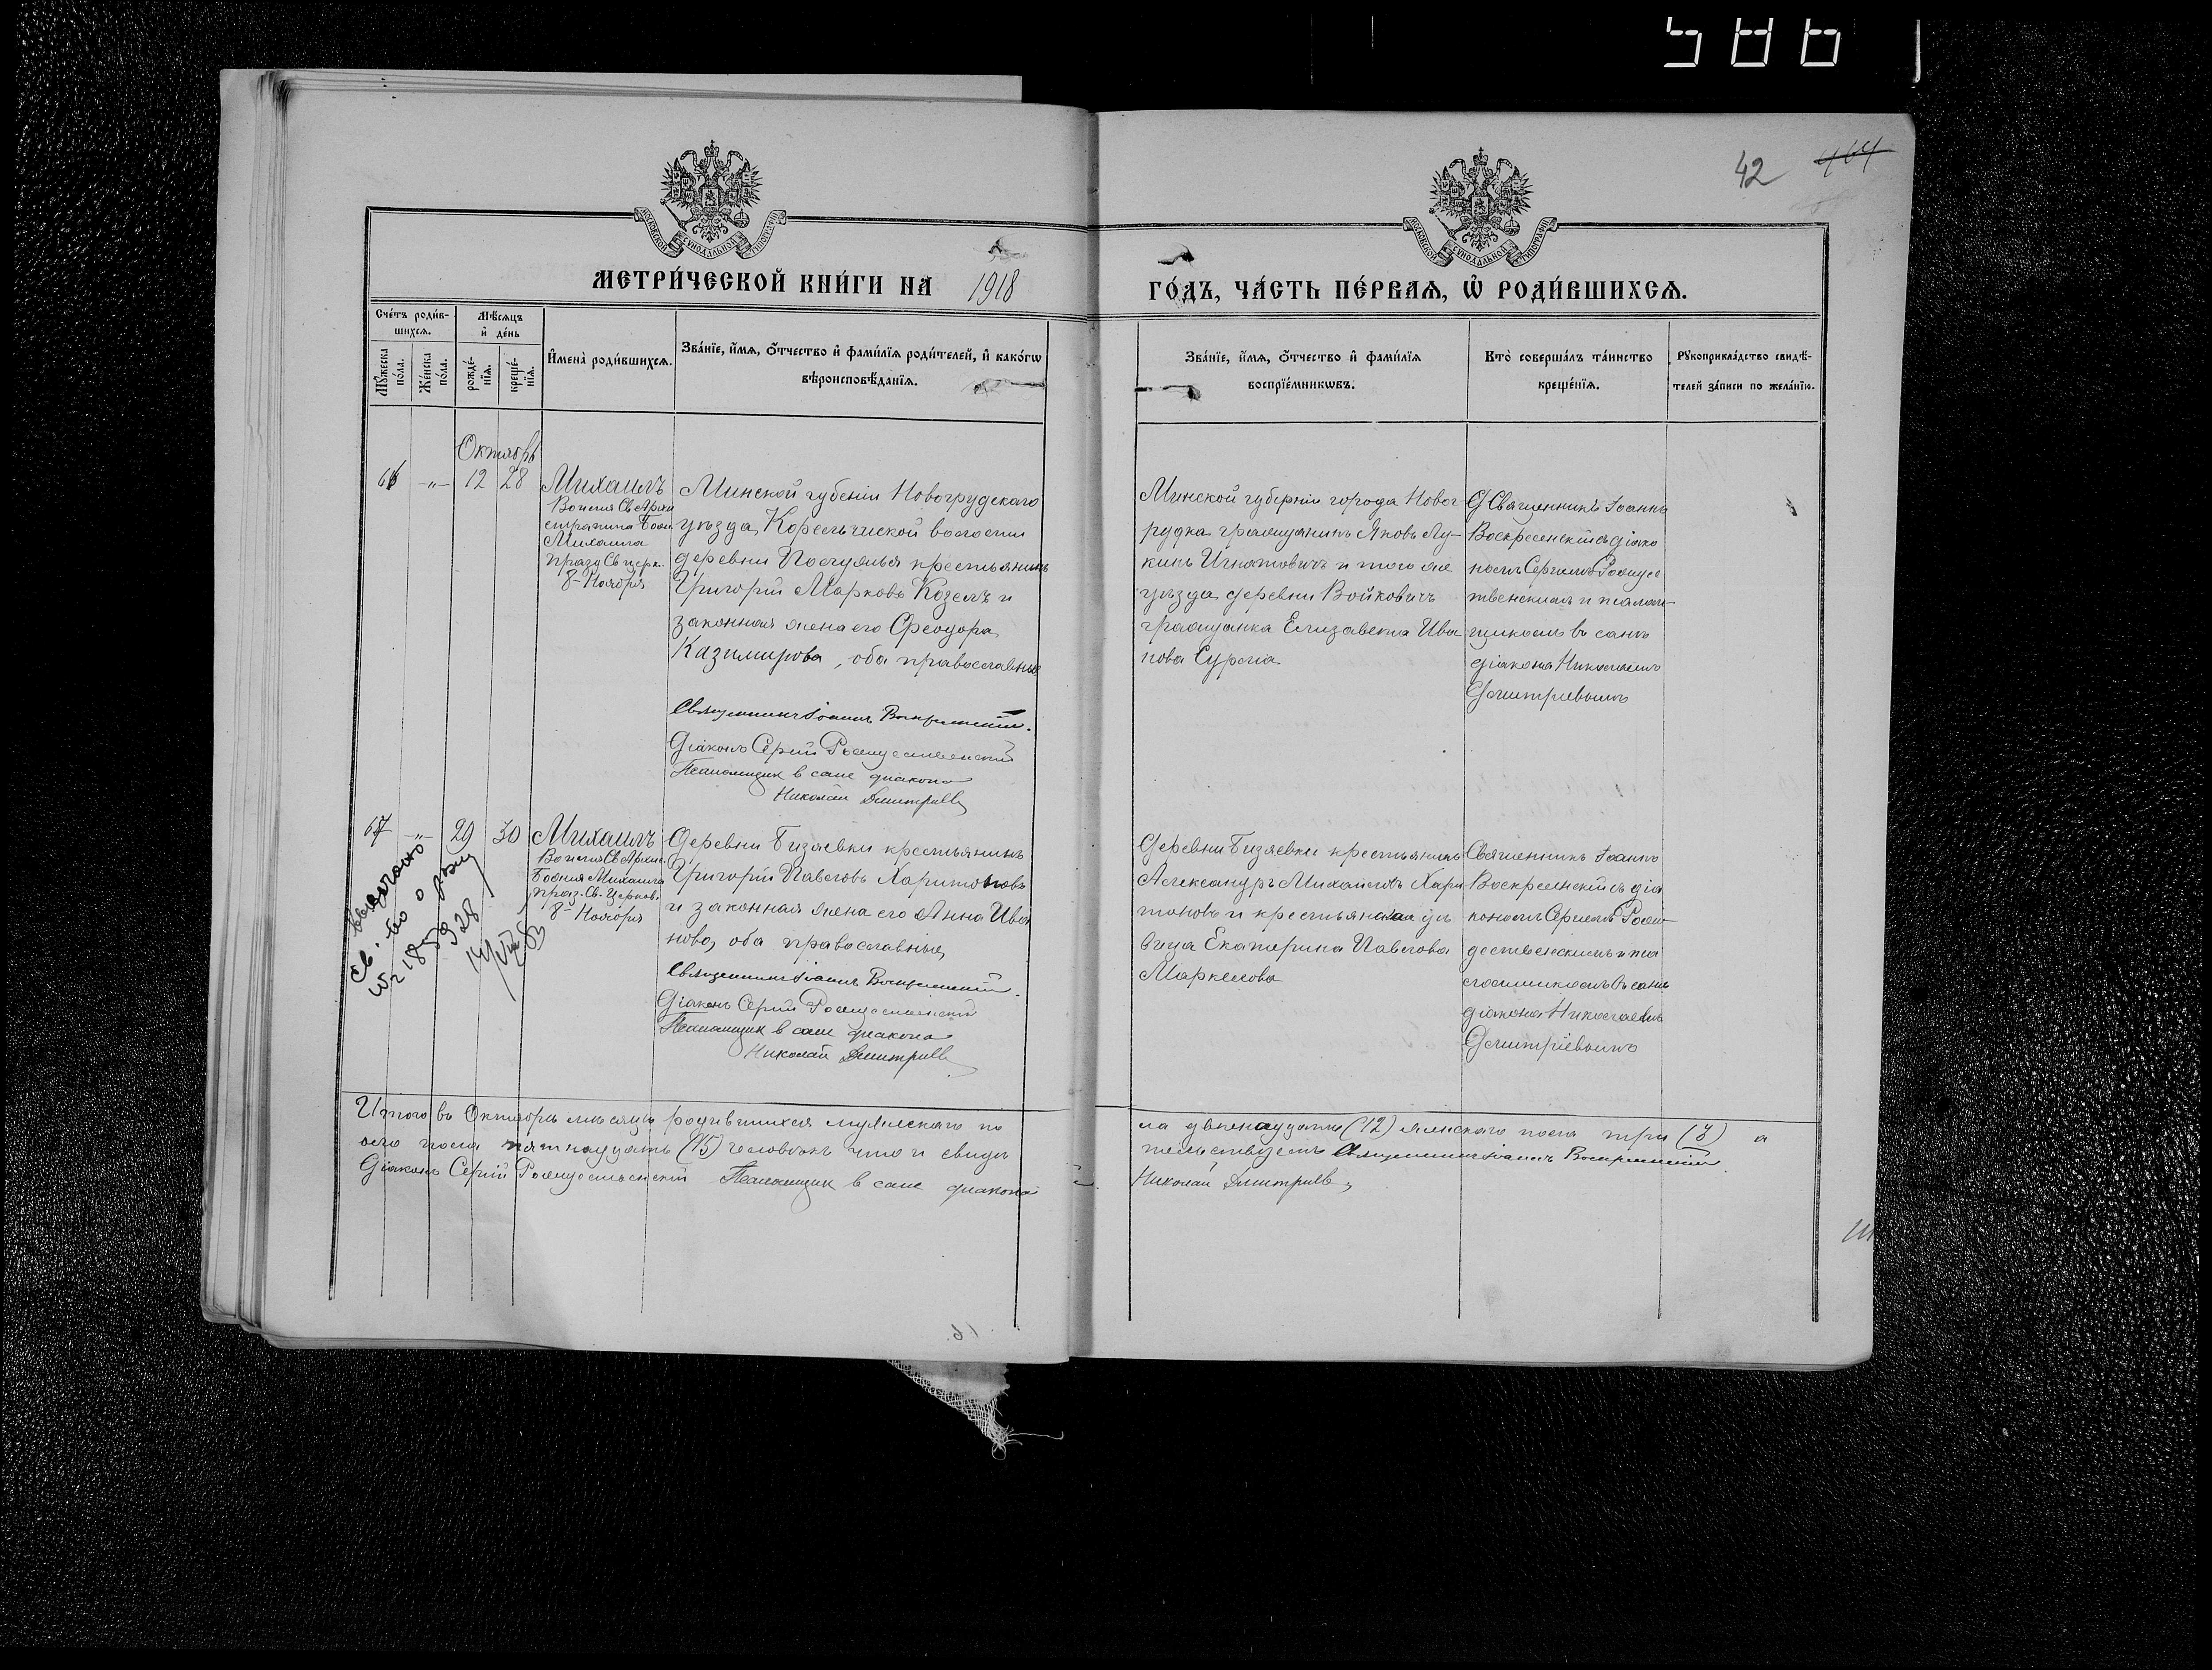 42 464
МОСКОВСКОЙ СѴНОДАЛЬНОЙ ТИПОГРАФІИ
МОСКОВСКОЙ СѴНОДАЛЬНОЙ ТИПОГРАФІИ
МЕТРИ́ЧЕСКОЙ КНИ́ГИ НА 1918
ГО́ДЪ, ЧА́СТЬ ПЕ́РВАѦ, Ѡ҆ РОДИ́ВШИХСѦ.
Сче́тъ роди́в-
шихсѧ.
Мꙋ́жеска
по́ла.
Же́нска
по́ла.
Мѣ́сѧцъ
и҆ де́нь
рожде́-
нїѧ.
креще́-
нїѧ.
И҆мена̀ роди́вшихсѧ.
Зва́нїе, и҆́мѧ, ѻ҆́тчество и҆ фами́лїѧ роди́телей, и҆ како́гѡ
вѣроисповѣ́данїѧ.
Зва́нїе, и҆́мѧ, ѻ҆́тчество и҆ фами́лїѧ
воспрїе́мникѡвъ.
Кто̀ соверша́лъ та́инство
креще́нїѧ.
Рꙋкоприкла́дство свидѣ́-
телей за́писи по жела́нїю.
Октябрь
66 -„- 12 28
Михаилъ
Во имя Св Архи
стратига Бож.
Михаила
празд Св церк.
8-Ноября
Минской губеніи Новогрудскаго
уѣзда, Корельчиской волости
деревни крестьянинъ
Григорій Марковъ Козелъ и
законная жена его Ѳеодора
Казимирова, оба православные
Священникъ Іоаннъ Воскресенскій.
Діаконъ Сергій Рождественскій
Псаломщик в сане диакона
Николай Дмитриевъ
Минской губерніи города Новог
рудка гражданинъ Яковъ Лу-
кинъ Игнатовичъ и того же
уѣзда, деревни Войковичъ
гражданка Елизавета Ива
нова
Священникъ Іоаннъ
Воскресенскій съ діако
номъ Сергіемъ Рождес
твенскимъ и псалом-
щикомъ въ санѣ
діакона Николаемъ
Дмитріевымъ
67 -„- 29 30
Михаилъ
Во имя Св Архис.
Божия Михаила
праз. Св. Церков.
8-Ноября
Деревни Бизяевки крестьянинъ
Григорій Павловъ Харитоновъ
и законная жена его Анна Ива
нова, оба православные,
Священникъ Іоаннъ Воскресенскій.
Діаконъ Сергій Рождественскій
Псаломщик в сане диакона
Николай Дмитриевъ
Деревни Бизяевки крестьянинъ
Александръ Михайловъ Хари
тоновъ и крестьянская дѣ
вица Екатерина Павлова
Маркелова
Священникъ Іоаннъ
Воскресенскій съ діа
кономъ Сергіемъ Рож-
дественскимъ и пса
ломщикомъ въ санѣ
діакона Николаемъ
Дмитріевымъ
выдано
св. о рожд
Итого въ Октябрѣ мѣсяцѣ родившихся мужескаго по
ла двенадцать (12) женскаго пола три (3) а
обго пола пятнадцать (15) человѣкъ что и свидѣ
тельствуетъ Священникъ Іоаннъ Воскресенскій.
Діаконъ Сергій Рождественскій Псаломщик в сане диакона
Николай Дмитриевъ